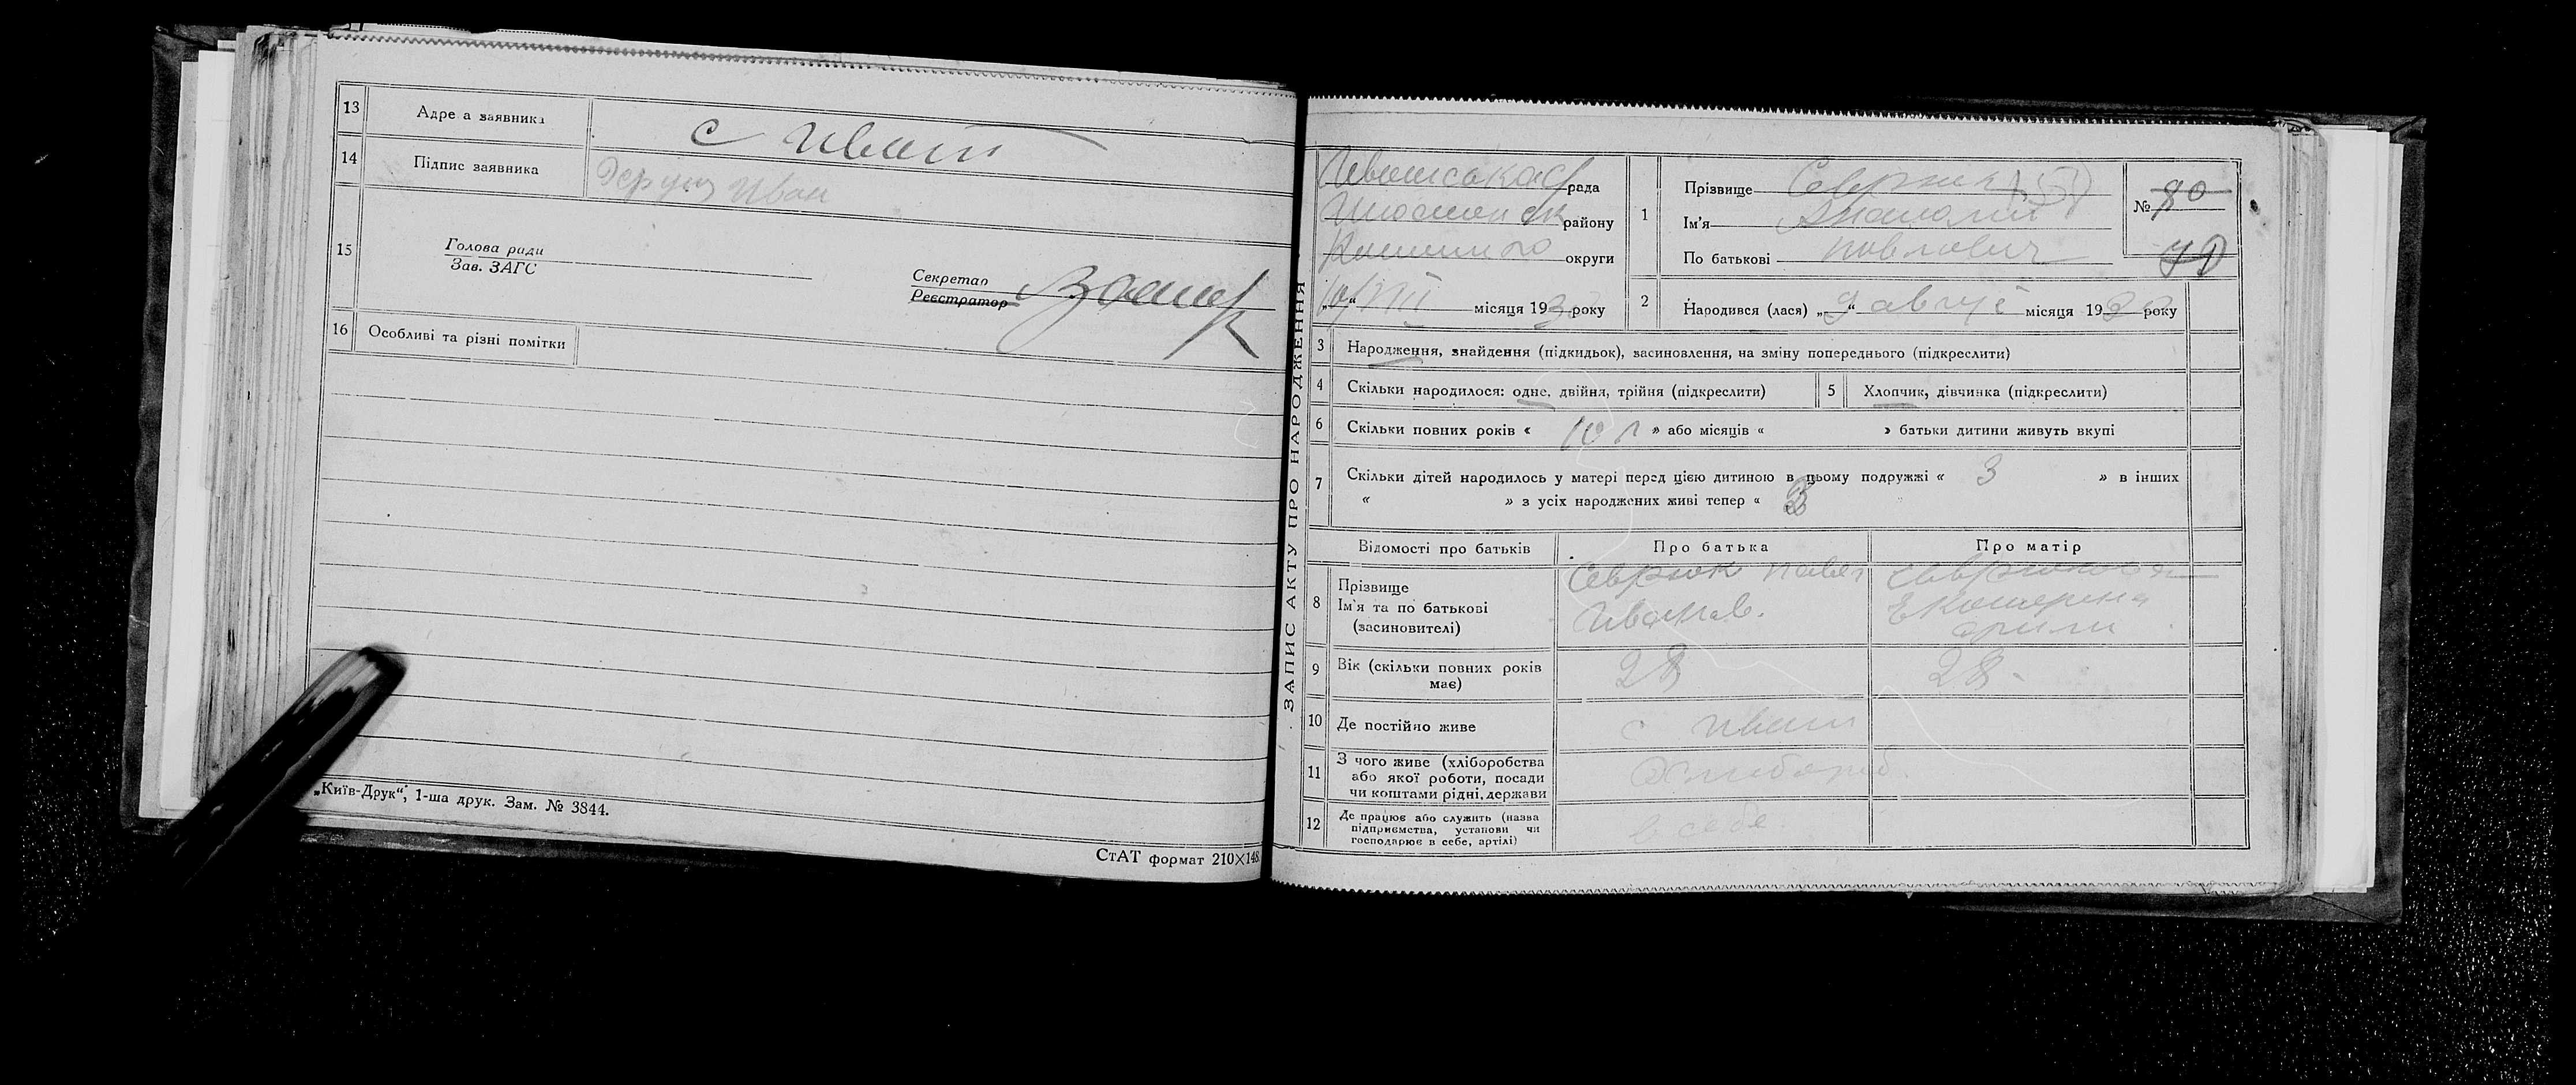 13 Адреса заявника с Ивот
14 Підпис заявника Иван
15 Голова ради
Зав. ЗАГС
Секретар
Реєстратор
16 Особливі та різні помітки
„Київ-Друк“, 1-ша друк. Зам. № 3844.
СтАТ формат 210×148.
ЗАПИС АКТУ ПРО НАРОДЖЕННЯ
рада
району
округи
10/VIII місяця 1930 року
1 Прізвище Севрюк
Ім'я Анатолий
По батькові Павлович
№ 80
2 Народився (лася) „9“ август місяця 1930 року
3 Народження, знайдення (підкидьок), засиновлення, на зміну попереднього (підкреслити)
4 Скільки народилося: одне, двійня, трійня (підкреслити)
5 Хлопчик, дівчинка (підкреслити)
6 Скільки повних років « 10 л » або місяців « » батьки дитини живуть вкупі
7 Скільки дітей народилось у матері перед цією дитиною в цьому подружжі « 3 » в інших
« » з усіх народжених живі тепер « 3
Відомості про батьків Про батька Про матір
8 Прізвище
Ім'я та по батькові
(засиновителі)
Севрюк Павел
Иванов.
Екатерина
9 Вік (скільки повних років
має)
28 28
10 Де постійно живе с Ивот
11 З чого живе (хліборобства
або якої роботи, посади
чи коштами рідні, держави
Хлибороб.
12 Де працює або служить (назва
підприємства, установи чи
господарює в себе, артілі)
в себе